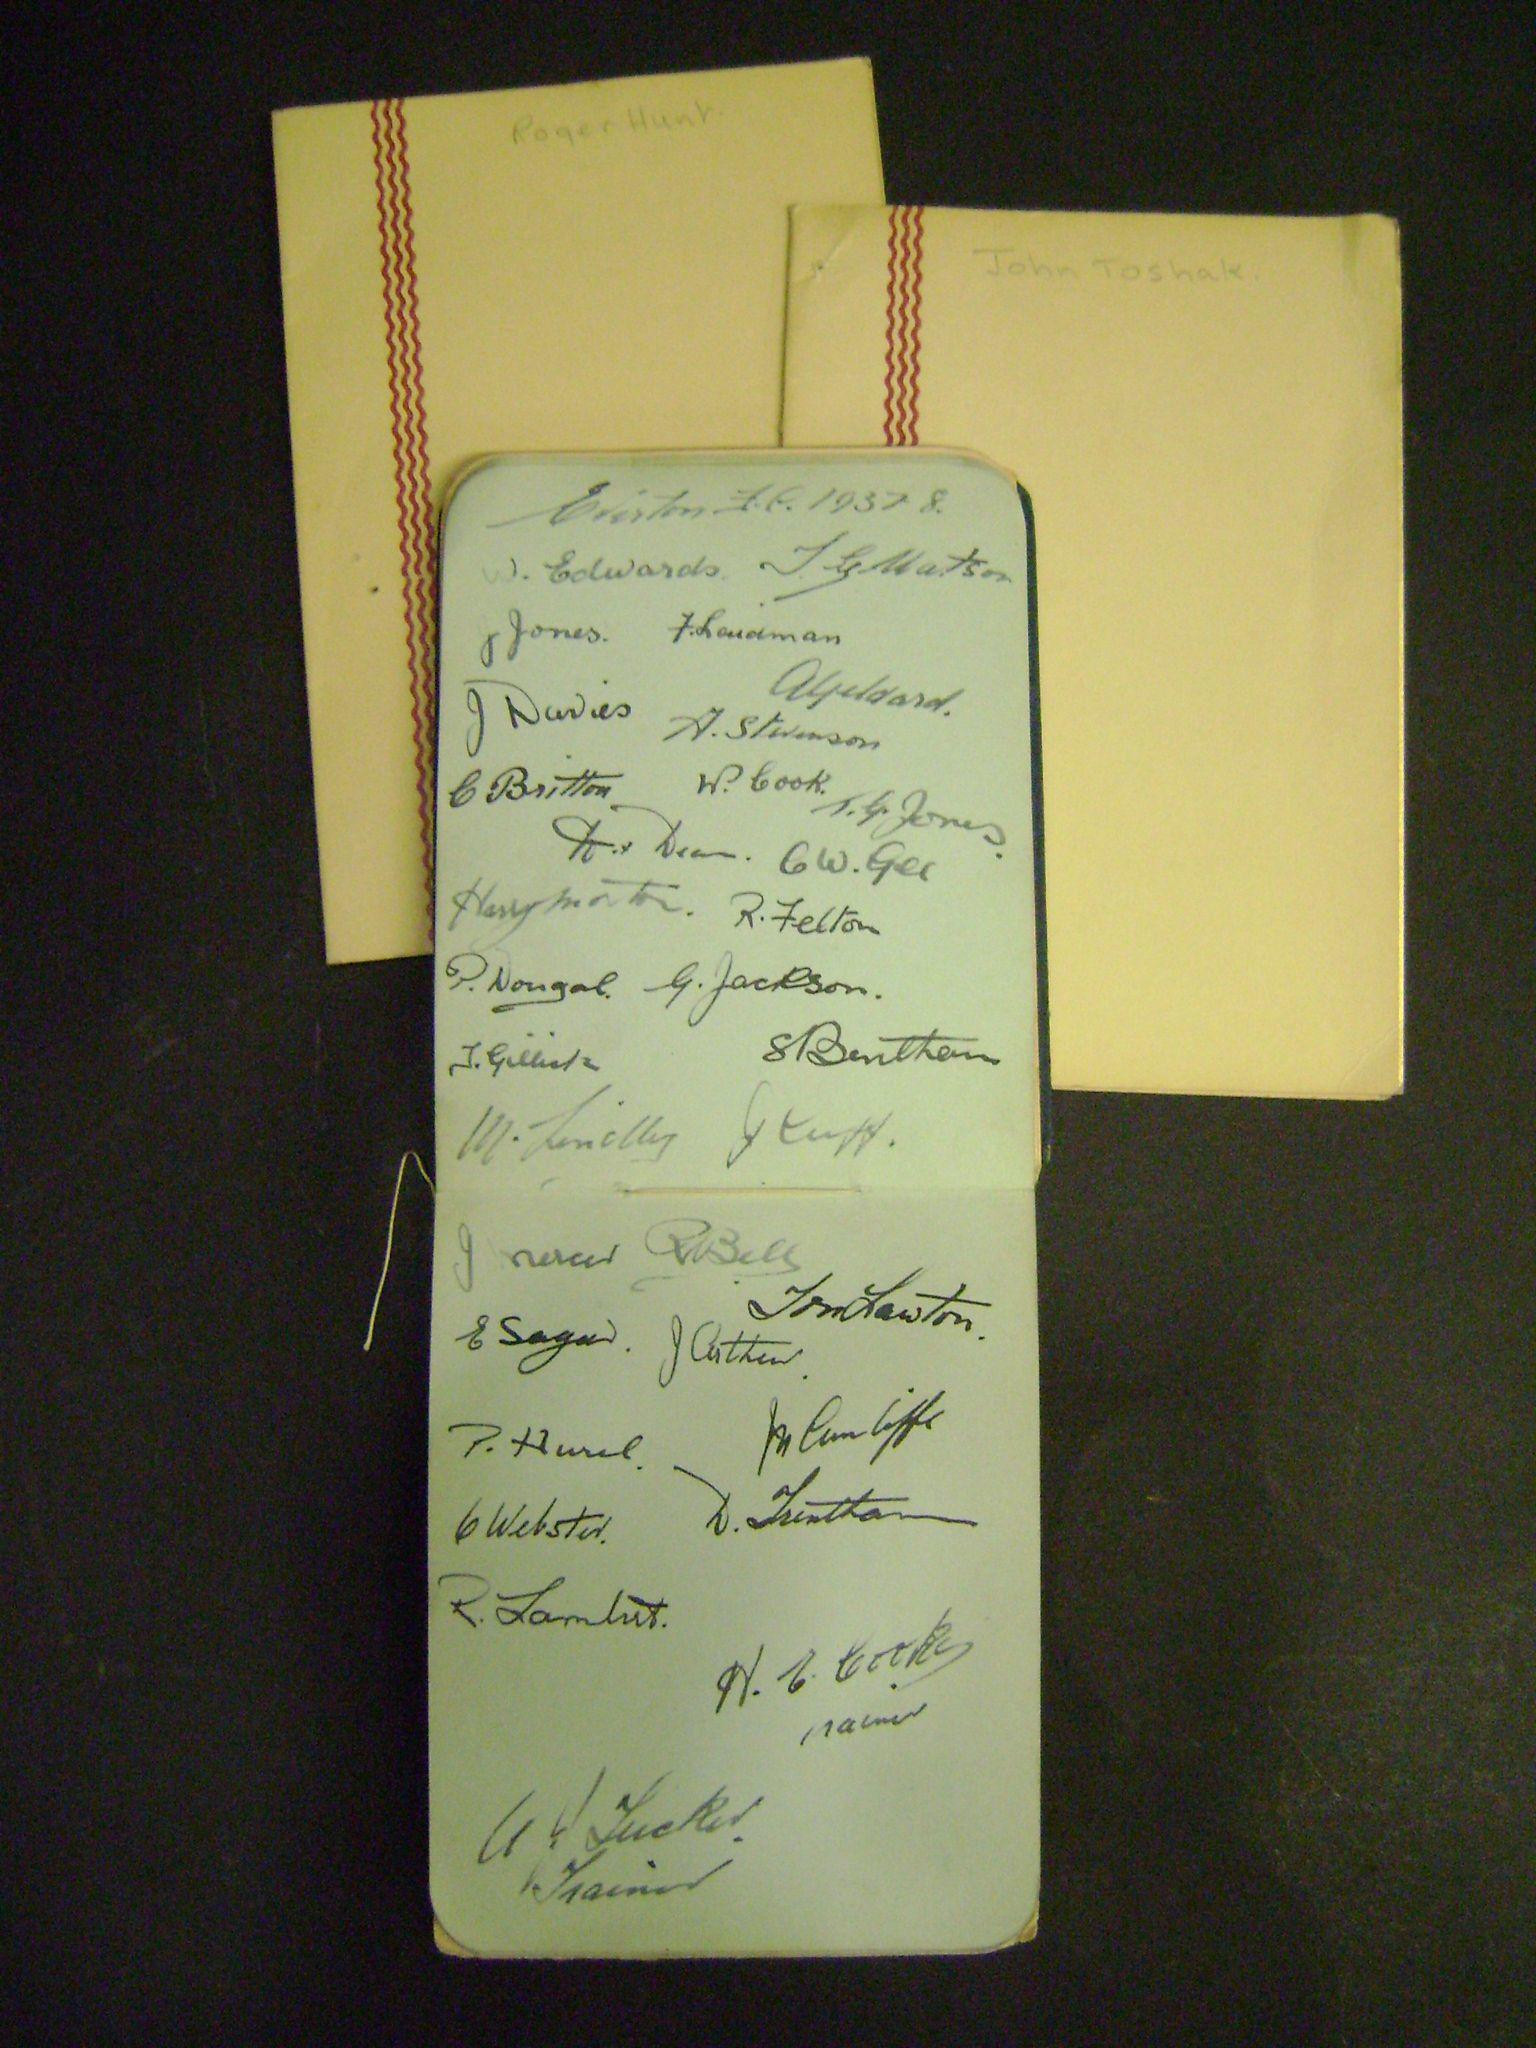 Roger Hunt.
John Toshak.
Everton F.C. 1937 8.
W. Edwards. T. G. Watson
J Jones. F. Laidman
A Geldard.
J Davies A. Stevenson
C Britton W. Cook.
T. G. Jones.
W. Dean. C W. Gee
Harry Morton. R. Felton
P. Dougal. G. Jackson.
T. Gillick S Bentham
M. Lindley J Cuff.
J Mercer R Bell
Tom Lawton.
E Sagar. J Arthur.
P. Hurel. J N Cunliffe
C Webster. D. Trentham
R. Lambert.
H. E. Cooke
Trainer
Tucker.
Trainer